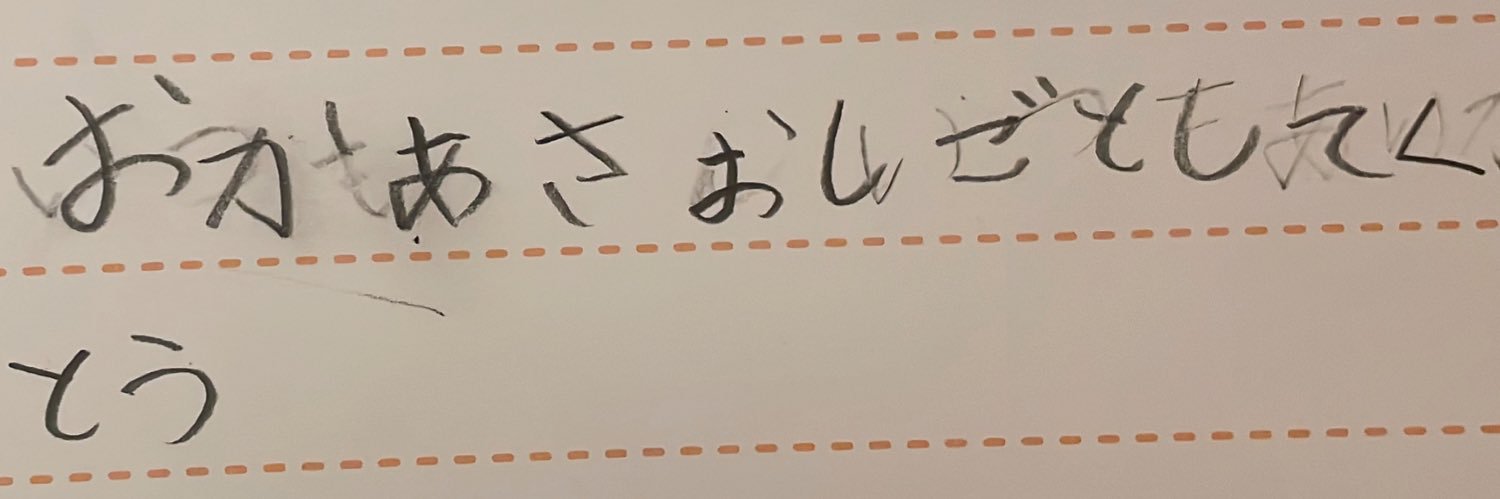 おかあさ おしごともてく
とう